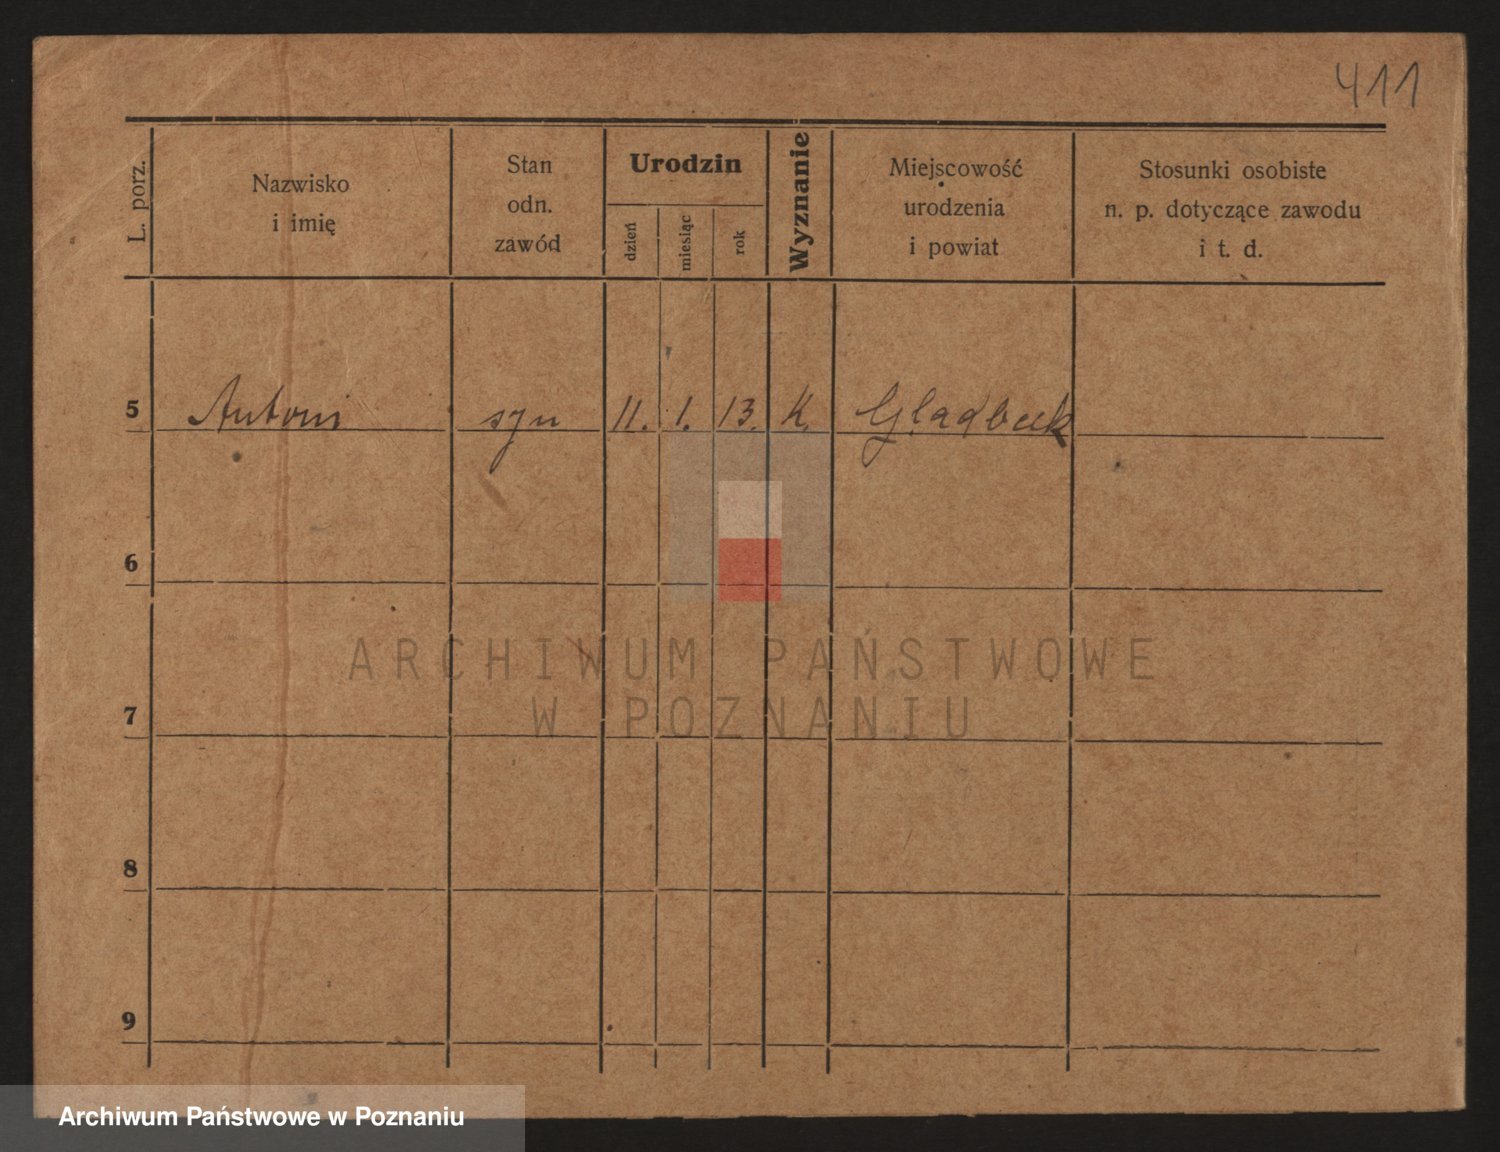 411
L. porz.
Nazwisko
i imię
Stan
odn.
zawód
Urodzin
dzień
miesiąc
rok
Wyznanie
Miejscowość
urodzenia
i powiat
Stosunki osobiste
n. p. dotyczące zawodu
i t. d.
5 Antoni syn 11. 1. 13. K. Gladbeck
6
7
8
9
ARCHIWUM PAŃSTWOWE
W POZNANIU
Archiwum Państwowe w Poznaniu